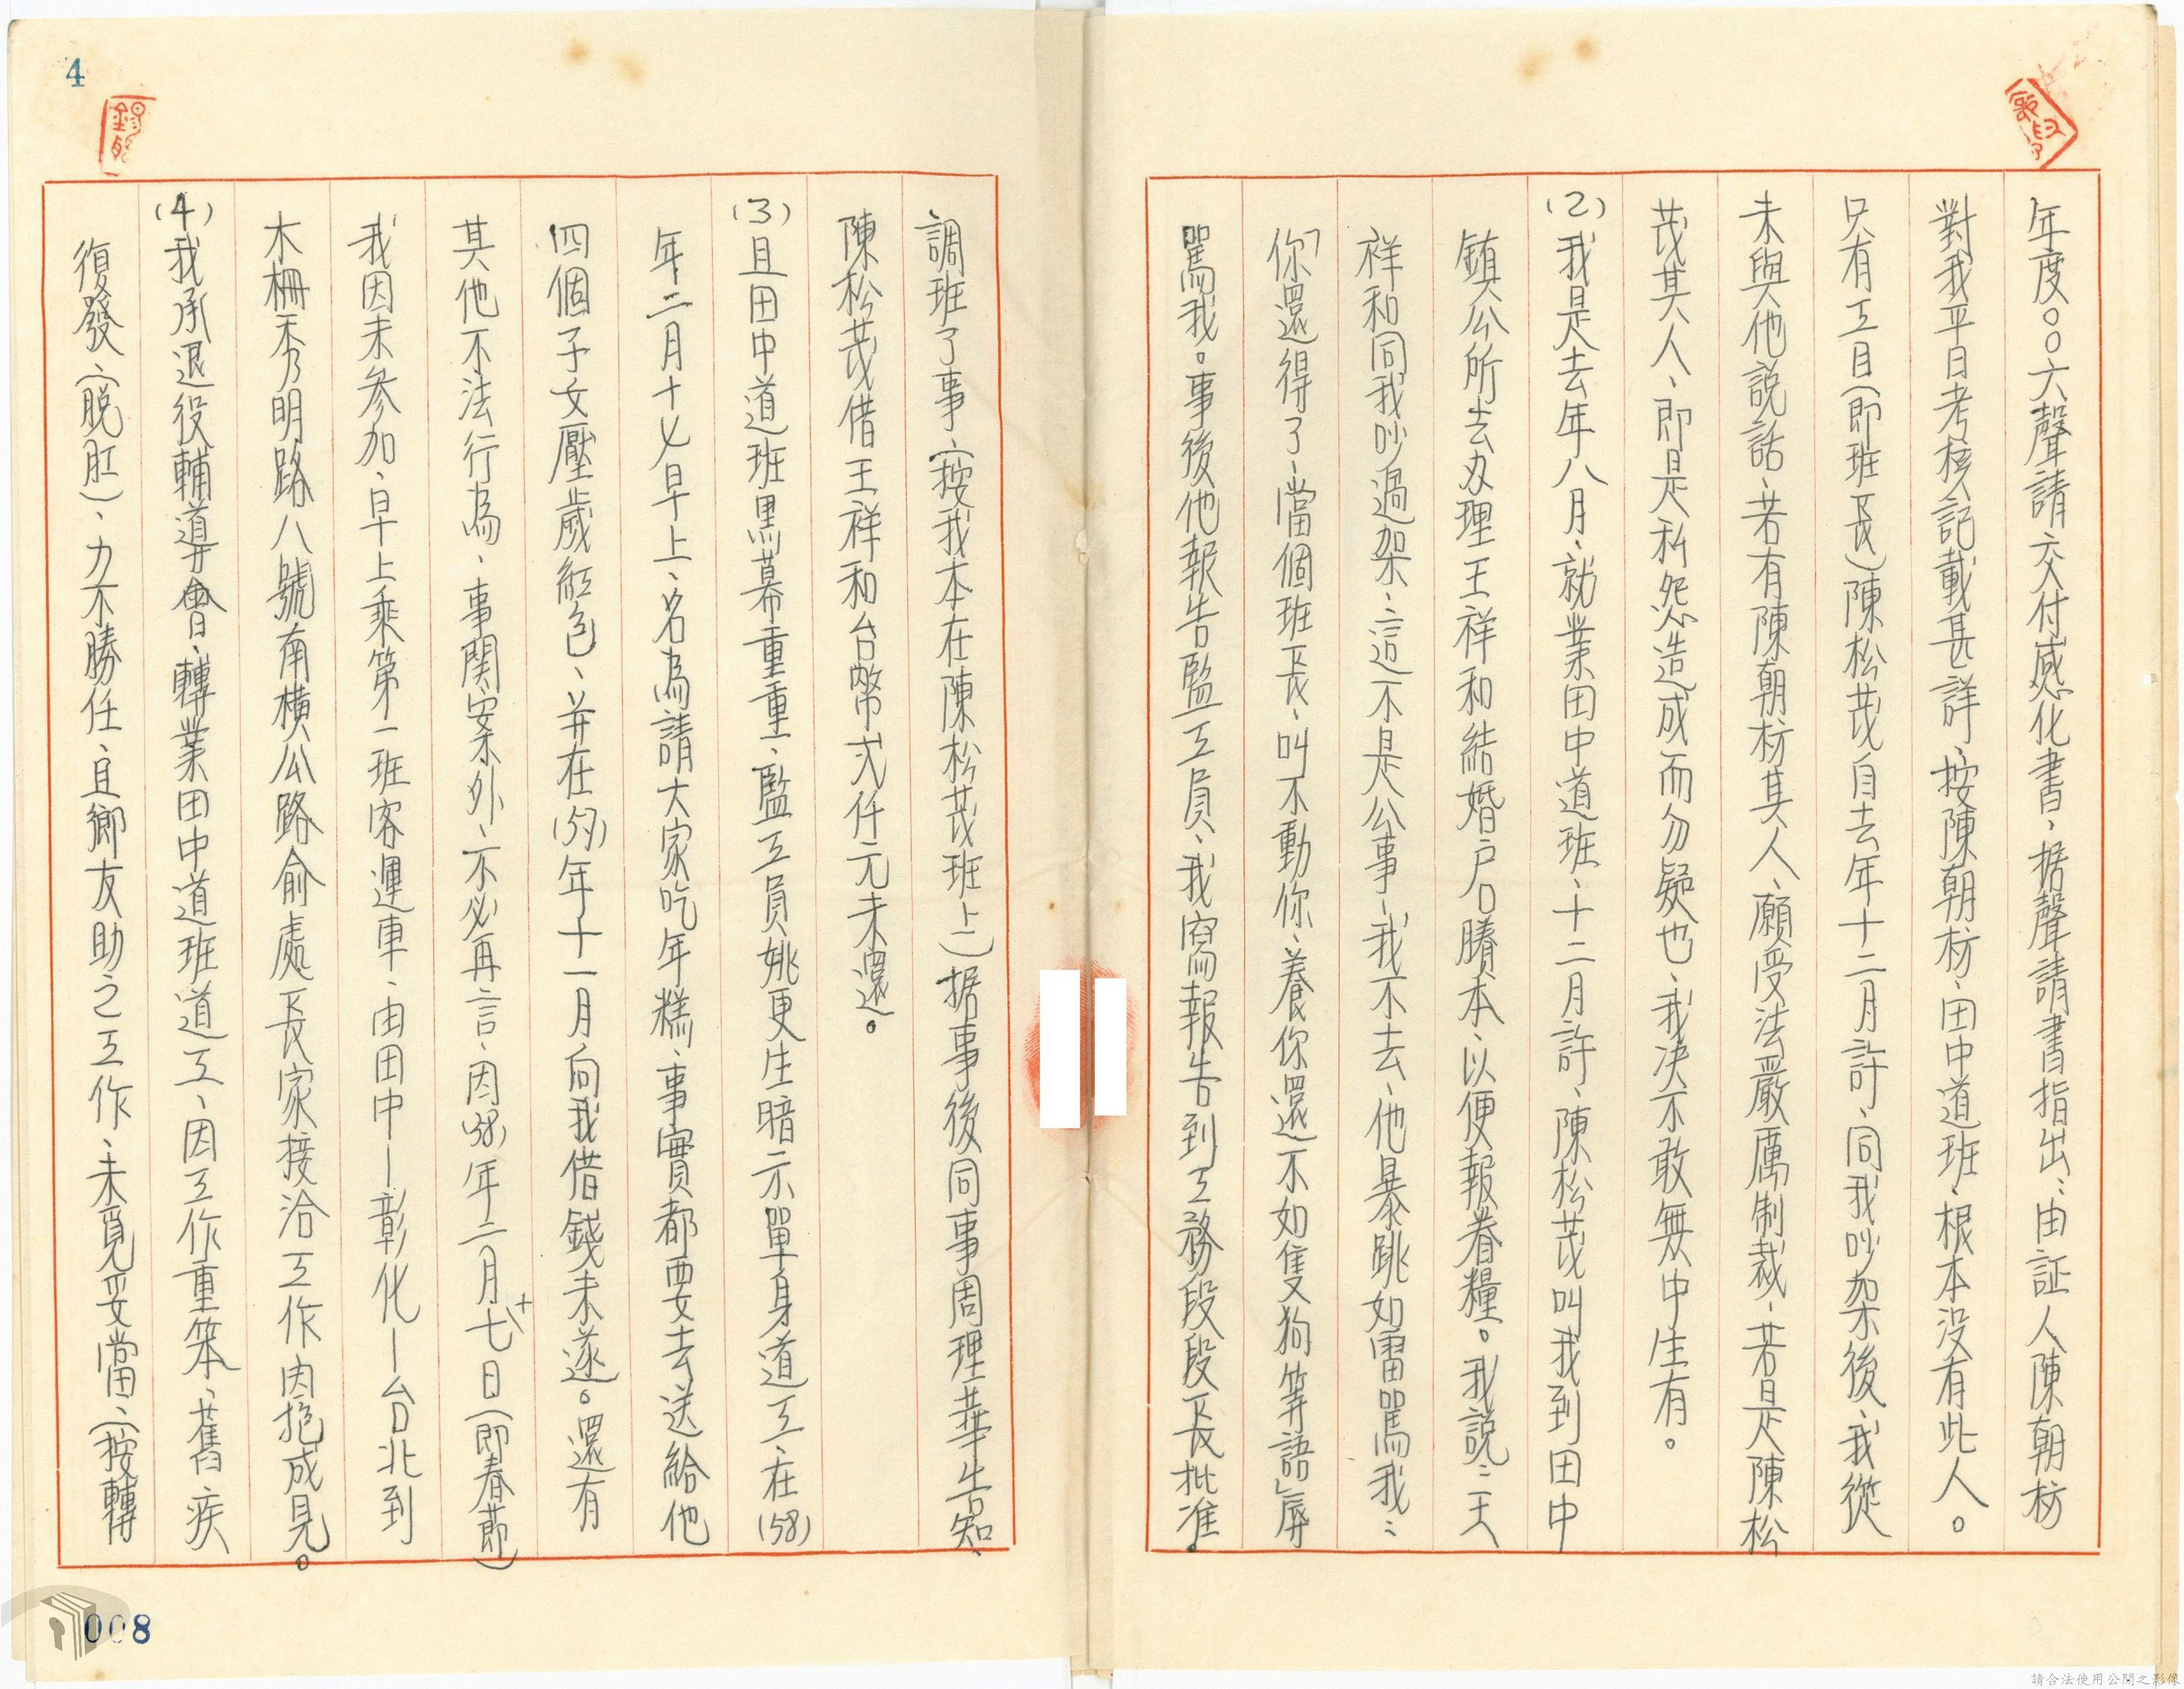 年度〇〇六聲請交付感化書、据聲請書指出：由証人陳朝枋
對我平日考核記載甚詳、按陳朝枋、田中道班、根本没有此人。
只有工目(即班長)陳松茂自去年十二月許、同我吵架後、我從
未與他説話、若有陳朝枋其人、願受法嚴厲制裁、若是陳松
茂其人、即是私怨造成而勿疑也、我决不敢無中生有。
(2)我是去年八月、就業田中道班、十二月許、陳松茂叫我到田中
鎮公所去办理王祥和結婚户口賸本、以便報眷糧。我説：王
祥和同我吵過架、這不是公事、我不去、他暴跳如雷駡我：
「你還得了、當個班長、叫不動你、養你還不如隻狗等語」辱
駡我。事後他報告監工員、我寫報告到工務段段長批准。
調班了事、(按我本在陳松茂班上)据事後同事周理華告知、
陳松茂借王祥和台幣弍仟元未還。
(3)且田中道班黑幕重重、監工員姚更生暗示單身道工、在(58)
年二月十七早上、名為請大家吃年糕、事實都要去送給他
四個子女壓歲紅包、并在(57)年十一月向我借錢未遂。還有
其他不法行為、事関案外、不必再言、因(58)年二月十七日(即春節)
我因未參加、早上乘第一班客運車、由田中—彰化—台北到
木柵秀明路八號南横公路俞處長家接洽工作因抱成見。
(4)我承退役輔導會、轉業田中道班道工、因工作重笨、舊疾
復發、(脱肛)、力不勝任、且鄉友助之工作、未覓妥當、(按轉
4
008
請合法使用公開之影像